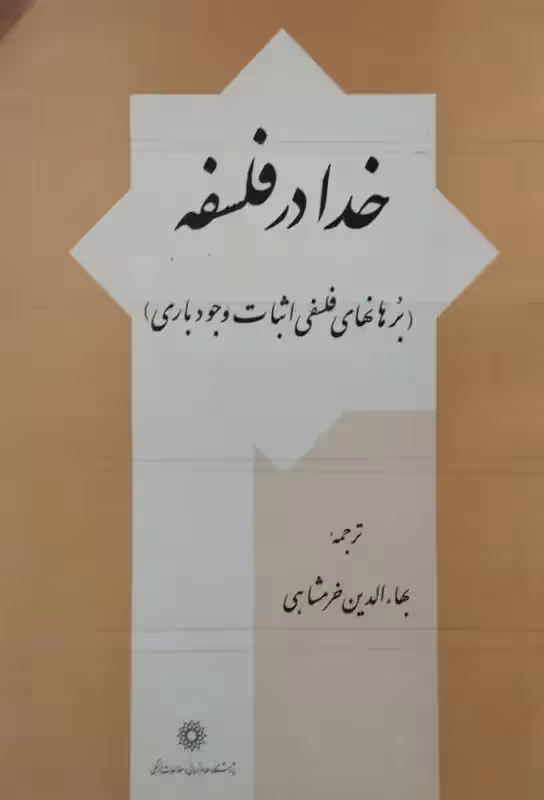 خدا در فلسفه
(بُرهانهای فلسفی اثبات وجود باری)
ترجمهٔ
بهاءالدین خرمشاهی
پژوهشگاه علوم انسانی و مطالعات فرهنگی